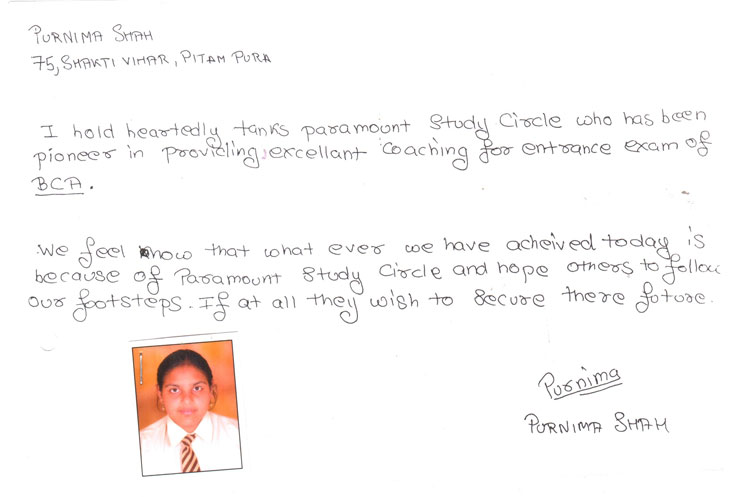 PURNIMA SHAH
75, SHAKTI VIHAR, PITAM PURA
I hold heartedly tanks paramount Study Circle who has been
pioneer in providing excellant coaching for entrance exam of
BCA.
We feel know that what ever we have acheived today is
because of Paramount Study Circle and hope others to follow
our footsteps. If at all they wish to secure there future.
Purnima
PURNIMA SHAH